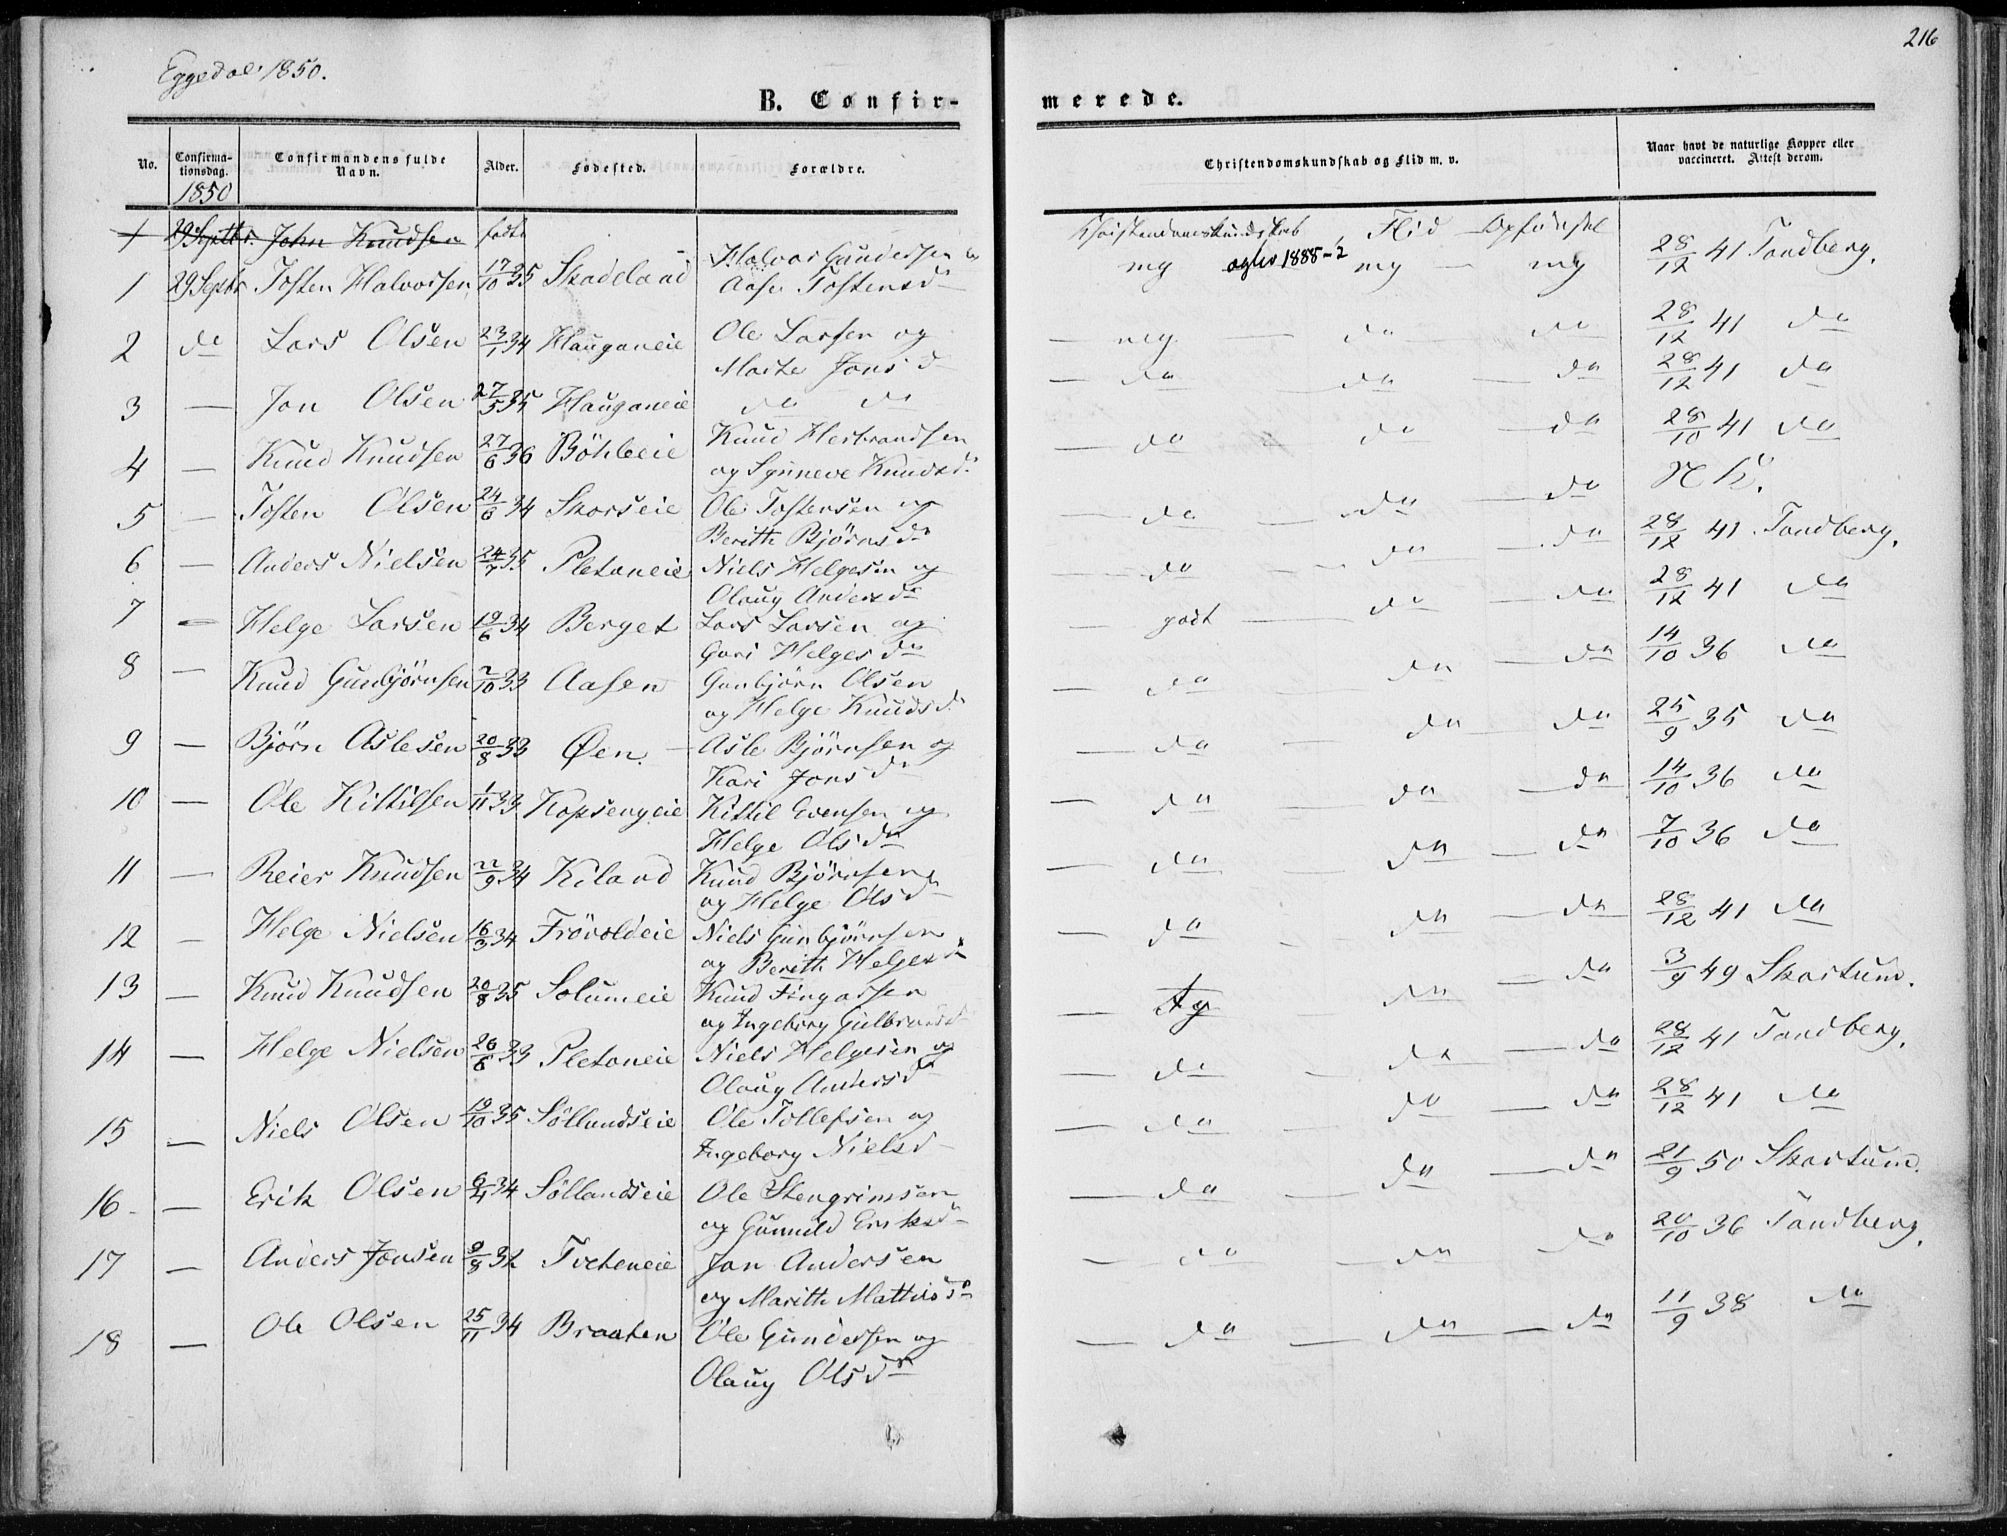 Eggedal 1850.
216
B. Confir-
merede.
No.
Confirma-
tionsdag.
Confirmandens fulde
Navn.
Alder.
Fødested.
Forældre.
Christendomskundskab og Flid m. v.
Naar havt de naturlige Kopper eller
vaccineret. Attest derom.
1850
1 29 Septbr. John Knudsen fødte
Christendomskundskab, Flid Opførsel
1 29 Septbr Tosten Halvorsen 17/10 35 Skadeland Halvor Gundersen og
Aase Tostensdr
mg oglev 1888-2 mg — mg 28/12 41 Tandberg.
2 do Lars Olsen 23/1 34 Hauganeie Ole Larsen og
Marte Jonsd
— mg — do — do 28/12 41 do
3 — Jon Olsen 27/5 35 Hauganeie do do
— do — do — do 28/12 41 do
4 — Knud Knudsen 27/6 36 Böhleeie Knud Herbrandsen
og Synneve Knudsd.
— do do — do 28/10 41 do
5 — Tosten Olsen 24/6 34 Skorseie Ole Tostensen og
Berith Björnsdr
— do — do — do N B.
6 — Anders Nielsen 24/7 35 Pletaneie Niels Helgesen og
Olaug Andersdr
— do — do — do 28/12 41 Tandberg.
7 — Helge Larsen 19/6 34 Berget Lars Larsen og
Guri Helgesdr
— godt — do — do 28/12 41 do
8 — Knud Gunbjörnsen 7/10 33 Aasen Gunbjörn Olsen
og Helge Knudsd.
— do do — do 14/10 36 do
9 — Björn Aslesen 20/8 33 Øen. — Asle Björnsen og
Kari Jonsdr
— do — do — do 25/9 35 do
10 — Ole Kittilsen 1/11 33 Kopsengeie Kittil Evensen og
Helge Olsdr
— do — do — do 14/10 36 do
11 — Reier Knudsen 22/9 34 Kiland Knud Björnsen
og Helge Olsdr
— do — do — do 7/10 36 do
12 — Helge Nielsen 16/3 34 Frövoldeie Niels Gunbjörnsen
og Berith Helgesdr
— do — do — do 28/12 41 do
13 — Knud Knudsen 20/8 35 Solumeie Knud Fingarsen
og Ingeborg Gulbrandsd
— tg do — do 3/9 49 Skartum.
14 — Helge Nielsen 26/6 33 Pletaneie Niels Helgesen og
Olaug Andersdr
— do — do — do 28/12 41 Tandberg.
15 — Niels Olsen 19/10 35 Söllandseie Ole Tollefsen og
Ingeborg Nielsd
— do do — do 28/12 41 do
16 — Erik Olsen 6/4 34 Söllandseie Ole Stengrimsen
og Gunnild Eriksdr
— do — do — do 21/9 50 Skartum.
17 — Anders Jonsen 9/8 32 Tveteneie Jon Andersen
og Marith Mattisdr
— do — do — do 20/10 36 Tandberg.
18 — Ole Olsen 25/11 34 Braaten Ole Gundersen og
Olaug Olsdr
— do — do — do 11/9 38 do